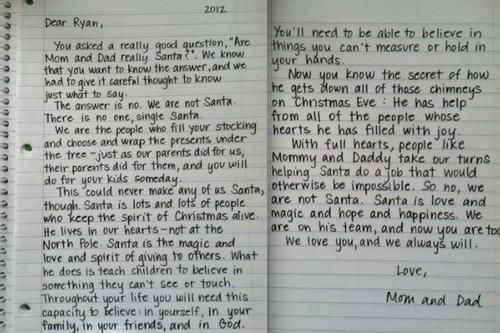 2012
Dear Ryan,
You asked a really good question, "Are
Mom and Dad really Santa?". We know
that you want to know the answer, and we
had to give it careful thought to know
just what to say.
The answer is no. We are not Santa.
There is no one, single Santa.
We are the people who fill your stocking
and choose and wrap the presents under
the tree - just as our parents did for us,
their parents did for them, and you will
do for your kids someday.
This could never make any of us Santa,
though. Santa is lots and lots of people
who keep the spirit of Christmas alive.
He lives in our hearts - not at the
North Pole. Santa is the magic and
love and spirit of giving to others. What
he does is teach children to believe in
something they can't see or touch.
Throughout your life you will need this
capacity to believe: in yourself, in your
family, in your friends, and in God.
You'll need to be able to believe in
things you can't measure or hold in
your hands.
Now you know the secret of how
he gets down all of those chimneys
on Christmas Eve: He has help
from all of the people whose
hearts he has filled with joy.
With full hearts, people like
Mommy and Daddy take our turns
helping Santa do a job that would
otherwise be impossible. So no, we
are not Santa. Santa is love and
magic and hope and happiness. We
are on his team, and now you are too.
We love you, and we always will.
Love,
Mom and Dad